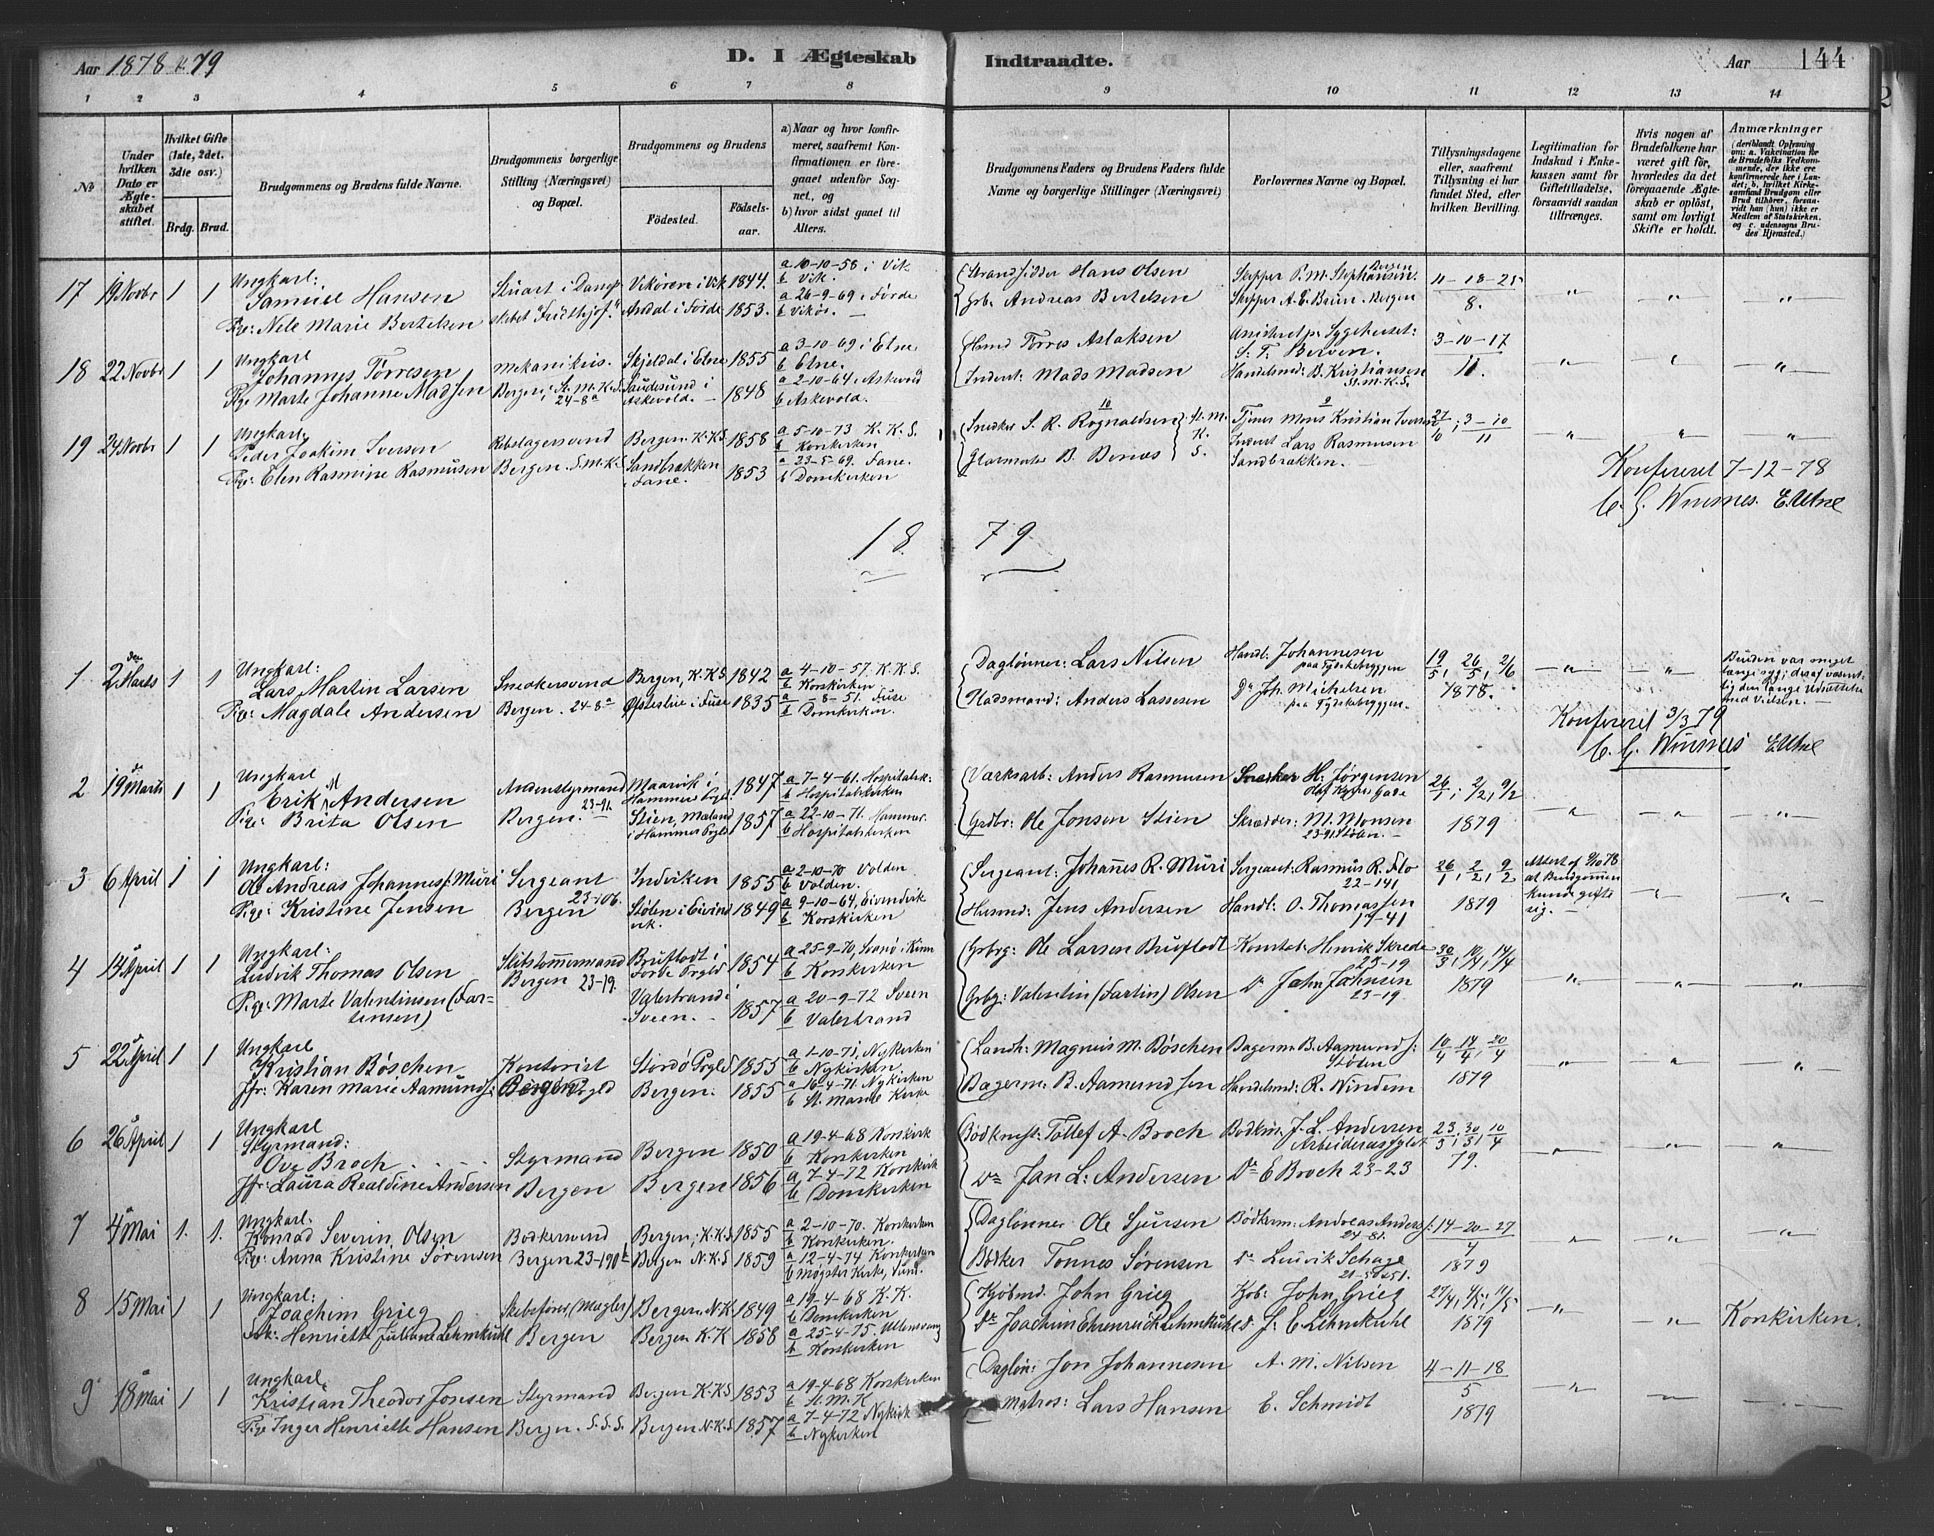 Aar 1878 & 79
D. I Ægteskab Indtraadte.
Aar 144
1 2 3 4 5 6 7 8 9 10 11 12 13 14
No
Under hvilken Dato er Ægteskabet stiftet.
Hvilket Gifte (1ste, 2det, 3die osv.)
Brdg. Brud.
Brudgommens og Brudens fulde Navne.
Brudgommens borgerlige Stilling (Næringsvei) og Bopæl.
Brudgommens og Brudens
Födested. Födselsaar.
a) Naar og hvor konfirmeret, saafremt Konfirmationen er foregaaet udenfor Sognet, og
b) hvor sidst gaaet til Alters.
Brudgommens Faders og Brudens Faders fulde Navne og borgerlige Stillinger (Næringsvei)
Forlovernes Navne og Bopæl.
Tillysningsdagene eller, saafremt Tillysning ei har fundet Sted, efter hvilken Bevilling.
Legitimation for Indskud i Enkekassen samt for Giftetilladelse, forsaavidt saadan tiltrænges.
Hvis nogen af Brudefolkene har været gift för, hvorledes da det foregaaende Ægteskab er oplöst, samt om lovligt Skifte er holdt.
Anmærkninger (deriblandt Oplysning om: a. Vakcination for Brudefolks Vedkommende, der ikke ere konfirmerede her i Landet; b. hvilket Kirkesamfund Brudgom eller Brud tilhörer, forsaavidt han (hun) ikke er Medlem af Statskirken, og c. udensogns Brudes Hjemsted.)
17 19 Novbr 1 1 Ungkarl: Samuel Hansen Stuart i Dampskibet "Fridthjof" Vikören i Vik 1844. a 10-10-58 i Vik b Vik. Strandsidder Hans Olsen Skipper P. M. Stephansen Bergen 11-18-25 8.
Pge: Nele Marie Bertelsen Asdal i Förde 1853. a 26-9-69 i Förde b Vikör. Grb. Andreas Bertelsen Skipper A. E. Bruun Bergen
18 22 Novbr 1 1 Ungkarl Johannes Torresen mekanikus. Bergen, St. M. K. S. 24-8a Skjeldal i Etne 1855 a 3-10-69 i Etne b Etne. Husmd Torres Aslaksen S. T. Berven. 3-10-17 11.
Pge Marte Johanne Madsen Askevold. 1848 a 2-10-64 i Askevold b Askevold. Inderst: Mads Madsen Handelsmd: B. Kristiansen St. M. K. S.
19 24 Novbr 1 1 Ungkarl: Peder Joakim Iversen Rebslagersvend Bergen. S. M. K. S. Bergen. K. K. S. 1858 a 5-10-73 K. K. S. b Korskirken Snedker S. R. Rognaldsen St. M. K. S. Tjener Mons Kristian Iversen 27/10; 3-10/11
Pge: Elen Rasmine Rasmusen Sandbrækken i Fane. 1853 a 23-5-69. Fane. b Domkirken Glarmester B. Bernes Inderst Lars Rasmusen Sandbrækken.
Konfereret 7-12-78
C. G. Winsnes. E. Utne
18 79
1 2den Marts 1 1 Ungkarl: Lars Martin Larsen Snedkersvend Bergen. 24-8a Bergen, K. K. S. 1842 a 4-10-57. K. K. S. b Korskirken Daglønner: Lars Nilsen Handl. Johannesen paa Tydskebryggen 19/5, 26/5, 2/6 1878. Bruden var meget længe syg; deraf væsentlig den lange Udsættelse med Vielsen.
Pge: Magdale Andersen Østeslie i Fuse 1835 a -8-51. Fuse b Domkirken. Husmand: Anders Lassesen Do Joh. Michelsen paa Tydskebryggen.
Konfereret 3/3 79
C. G. Winsnes E. Utne
2 19 Marts 1 1 Ungkarl Erik Andersen Andenstyrmand 23-91. Bergen. Maarvik i Hammers Prgld. 1847 a 7-4-61. Hospitalsk. b Hospitalskirken Værksarb: Anders Rasmusen Snedker H. Jørgensen Olaf Kyrres Gade 26/1; 2/2, 9/2 1879
Pge: Brita Olsen Stien, Mæland i Hammer Prgld 1857 a 22-10-71. Hammer. b Hospitalskirken Grdbr: Ole Jonsen Stien Skrædder: M. Monsen 23-91 Stølen.
3 6 April 1 1 Ungkarl: Ole Andreas Johannesen Muri Sergeant 23-106. Bergen Indviken 1855 a 2-10-70 Volden b Volden. Sergeant: Johanes R. Muri Sergeant: Rasmus R. Flo 22-141 26/1, 2/2, 9/2 1879 Attest af 9/10 78 at Brudgommen kunde gifte sig.
Pge: Kristine Jensen Stølen i Eivindvik. 1849 a 9-10-64, Eivindvik b Korskirken Husmd: Jens Andersen Handl: O. Thomassen 17-41
4 14 April 1 1 Ungkarl: Ludvik Thomas Olsen Skibstømmermand Bergen 23-19. Bruflodt i Förde Prgld 1854 a 25-9-70, Svanö i Kinn b Korskirken Grbrg: Ole Larsen Bruflodt Konstab: Henrik Skrede 23-19 30/3, 10/4, 14/4 1879
Pge: Marte Valentinsen (Fartensen) Valestrand i Sveen. 1857 a 20-9-72 Sveen b Valestrand Grbg: Valentin (Fartin) Olsen Do John Johnsen 23-19
5 22 April 1 1 Ungkarl Kristian Böschen Kontorist Bergen Stordö Prgld 1855 a 1-10-71, Nykirken b Nykirken. Landh: Magnus M. Böschen Bagerm: B. Aamundsen Stølen 10/4 14/4, 20/4 1879
Jfr: Karen Marie Aamundsen Bergen. 1855 a 16-4-71. Nykirken b St. Mariæ Kirke Bagerm: B. Aamundsen Handelsmd: R. Nindem
6 26 April 1 1 Ungkarl Styrmand: Ove Broch Styrmand Bergen Bergen 1850 a 19-4-68 Korskirk b Korskirken Bödkmest: Tollef A. Broch Bödkm: J. L. Andersen 23/3, 30/3, 10/4 79.
Jfr: Laura Realdine Andersen Bergen 1856 a 7-4-72 Korskirk b Domkirken Do Jan L. Andersen Do E. Broch 23-23
7 4 Mai 1. 1. Ungkarl. Konrad Severin Olsen Bödkersvend Bergen 23-190 Bergen, K. K. S. 1855 a 2-10-70. Korskirken b Korskirken. Daglønner Ole Sjursen Bödkerm: Andreas Anders. 24-81. 14-20-27 4 1879
Pge: Anna Kristine Sörensen Bergen N. K. S 1859 a 12-4-74 Korskirken b Møgster Kirke, Sund. Bödker Tönnes Sörensen Do Ludvik Schage
8 15 Mai 1 1 Ungkarl: Joachim Grieg Skibsförer (Mægler) Bergen Bergen. N. K. 1849 a 19-4-68 K. K. b Domkirken Kjöbmd. John Grieg Kjöb: John Grieg 27/4, 4/5, 11/5 1879 Korskirken.
Henriette Juliane Lehmkuhl Bergen K. K 1858 a 25-4-75. Ullensvang b Korskirken Do Joachim Ehrenreich Lehmkuhl Do J. E. Lehmkuhl
9 18 Mai 1 1 Ungkarl Kristian Theodor Jonsen Styrmand Bergen. S. S. S. Bergen K. K. S 1853 a 19-4-68 Korskirken b St. M. K Daglön: Jon Johannesen A. M. Nilsen 4-11-18 5 1879
Pge Inger Henriette Hansen Bergen N. K. S. 1857 a 7-4-72 Nykirk b Nykirken Matros: Lars Hansen E. Schmidt